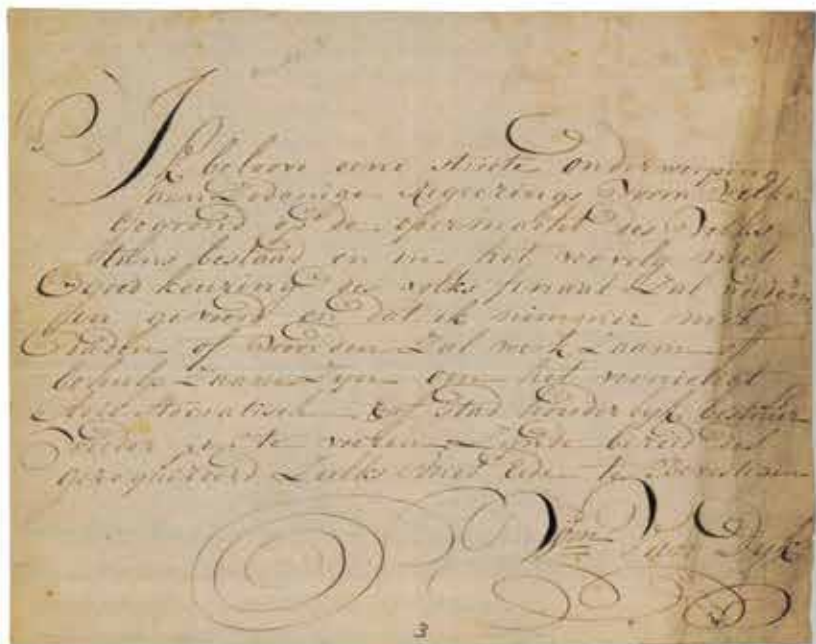 Ik beloove eene stricte onderwerping
aan Zodanige Regeerings Vorm Welke
Gegrond op de oppermacht des Volks
thans bestaat en in het vervolg met
Goedkeuring des volks finaal Zal worden
in gevoerd en dat ik nimmer met
Raaden of Woorden Zal werkZaam of
behulpZaam Zyn om het voormalige
Aristocratisch of Stad houderlyk bestuur
weder in te voeren Zynde bereid des
gerequireerd Zulks met Ede te
Wm Van Dyk
3